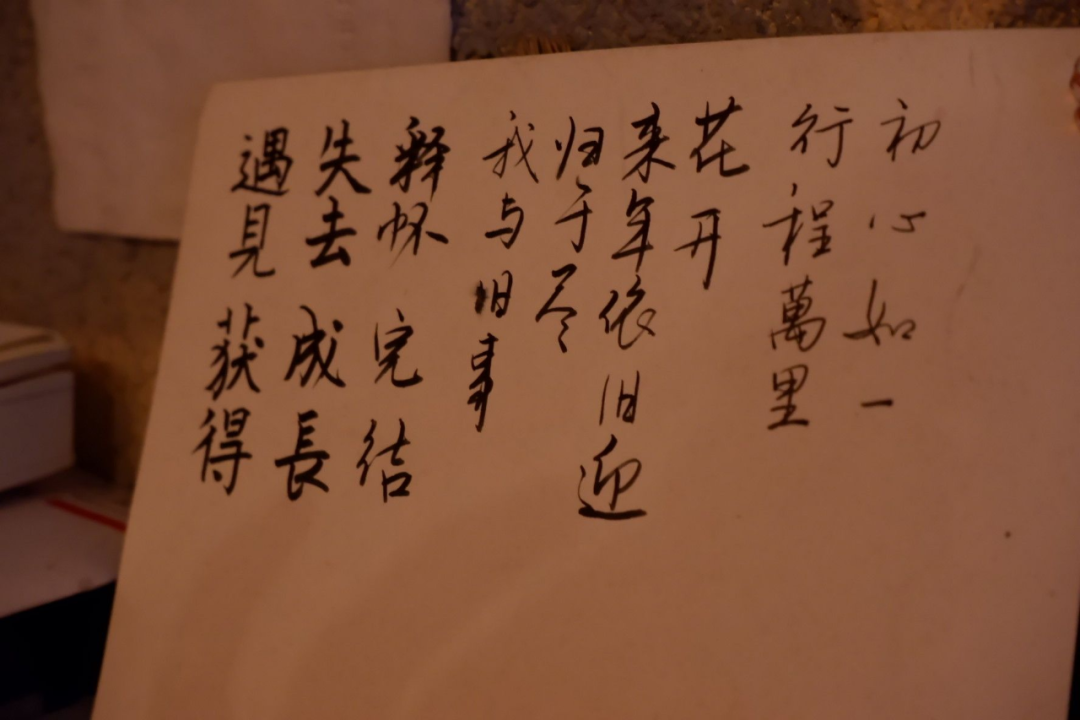 初心如一
行程萬里
花开
来年依旧迎
归于尽
我与旧事
释怀 完结
失去 成長
遇見 获得